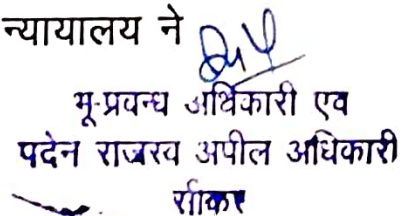 न्यायालय ने
भू-प्रवन्ध अधिकारी एव
पदेन राजस्व अपील अधिकारी
सीकर